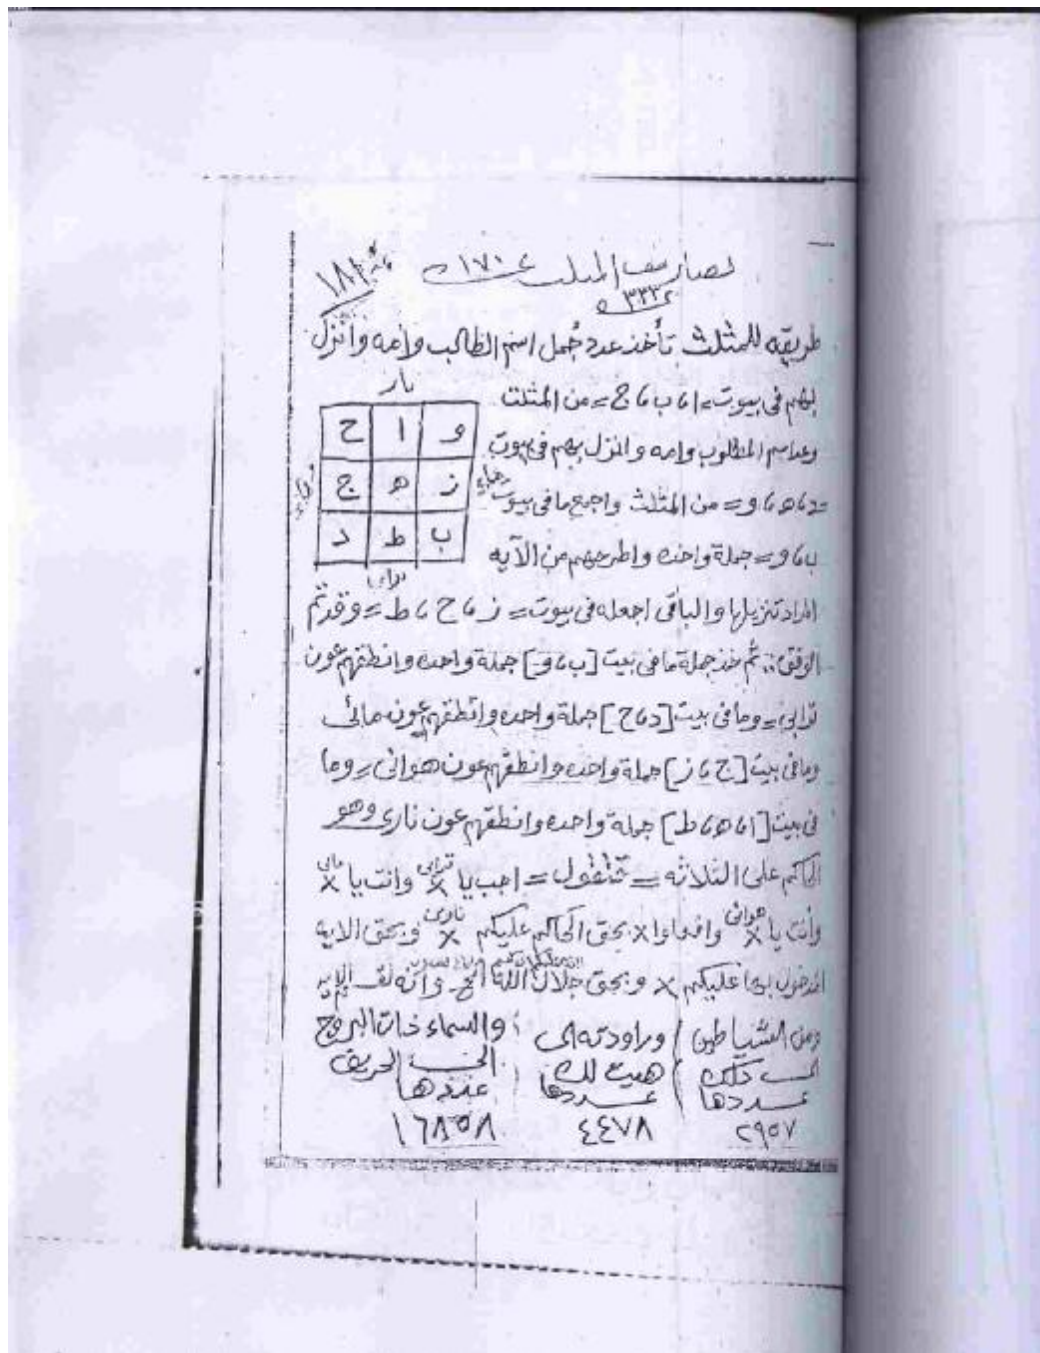 تصاريف المثلث ١٧٠
١٨١
٣٣٣
طريقه للمثلث تأخذ عدد جُمل اسم الطالب وامه وانزل
بهم في بيوت = ا ، ب ، ج = من المثلث
نار
و ا ح
ز ه ج
ب ط د
وعد اسم المطلوب وامه وانزل بهم في بيوت
= د ، ه ، و = من المثلث واجمع ما في بيوت
ب ، و = جملة واحده واطرحهم من الآيه
المراد تنزيلها والباقى اجعله فى بيوت = ز ، ح ، ط = وقد تم
الوفق :: ثم خذ جملة ما فى بيت [ ب ، و ] جملة واحده وانطقهم عون
ترابى = وما فى بيت [ د ، ح ] جملة واحده وانطقهم عون مائى
وما فى بيت [ ج ، ز ] جملة واحده وانطقهم عون هوائى = وما
فى بيت [ ا ، ه ، ط ] جملة واحده وانطقهم عون نارى وهو
الحاكم على الثلاثه = فتقول = اجب يا × ترابى وانت يا × مائى
وأنت يا × هوائى وافعلوا × بحق الحاكم عليكم × نارى وبحق الايه
عليكم × وبحق جلال الله وانه لقسم
ومن الشياطين / وراودته الى / والسماء ذات البروج
الى ذلك / هيت لك / الى الحريق
عددها / عددها / عددها
٢٩٥٧ ٤٤٧٨ ١٦٨٥٨